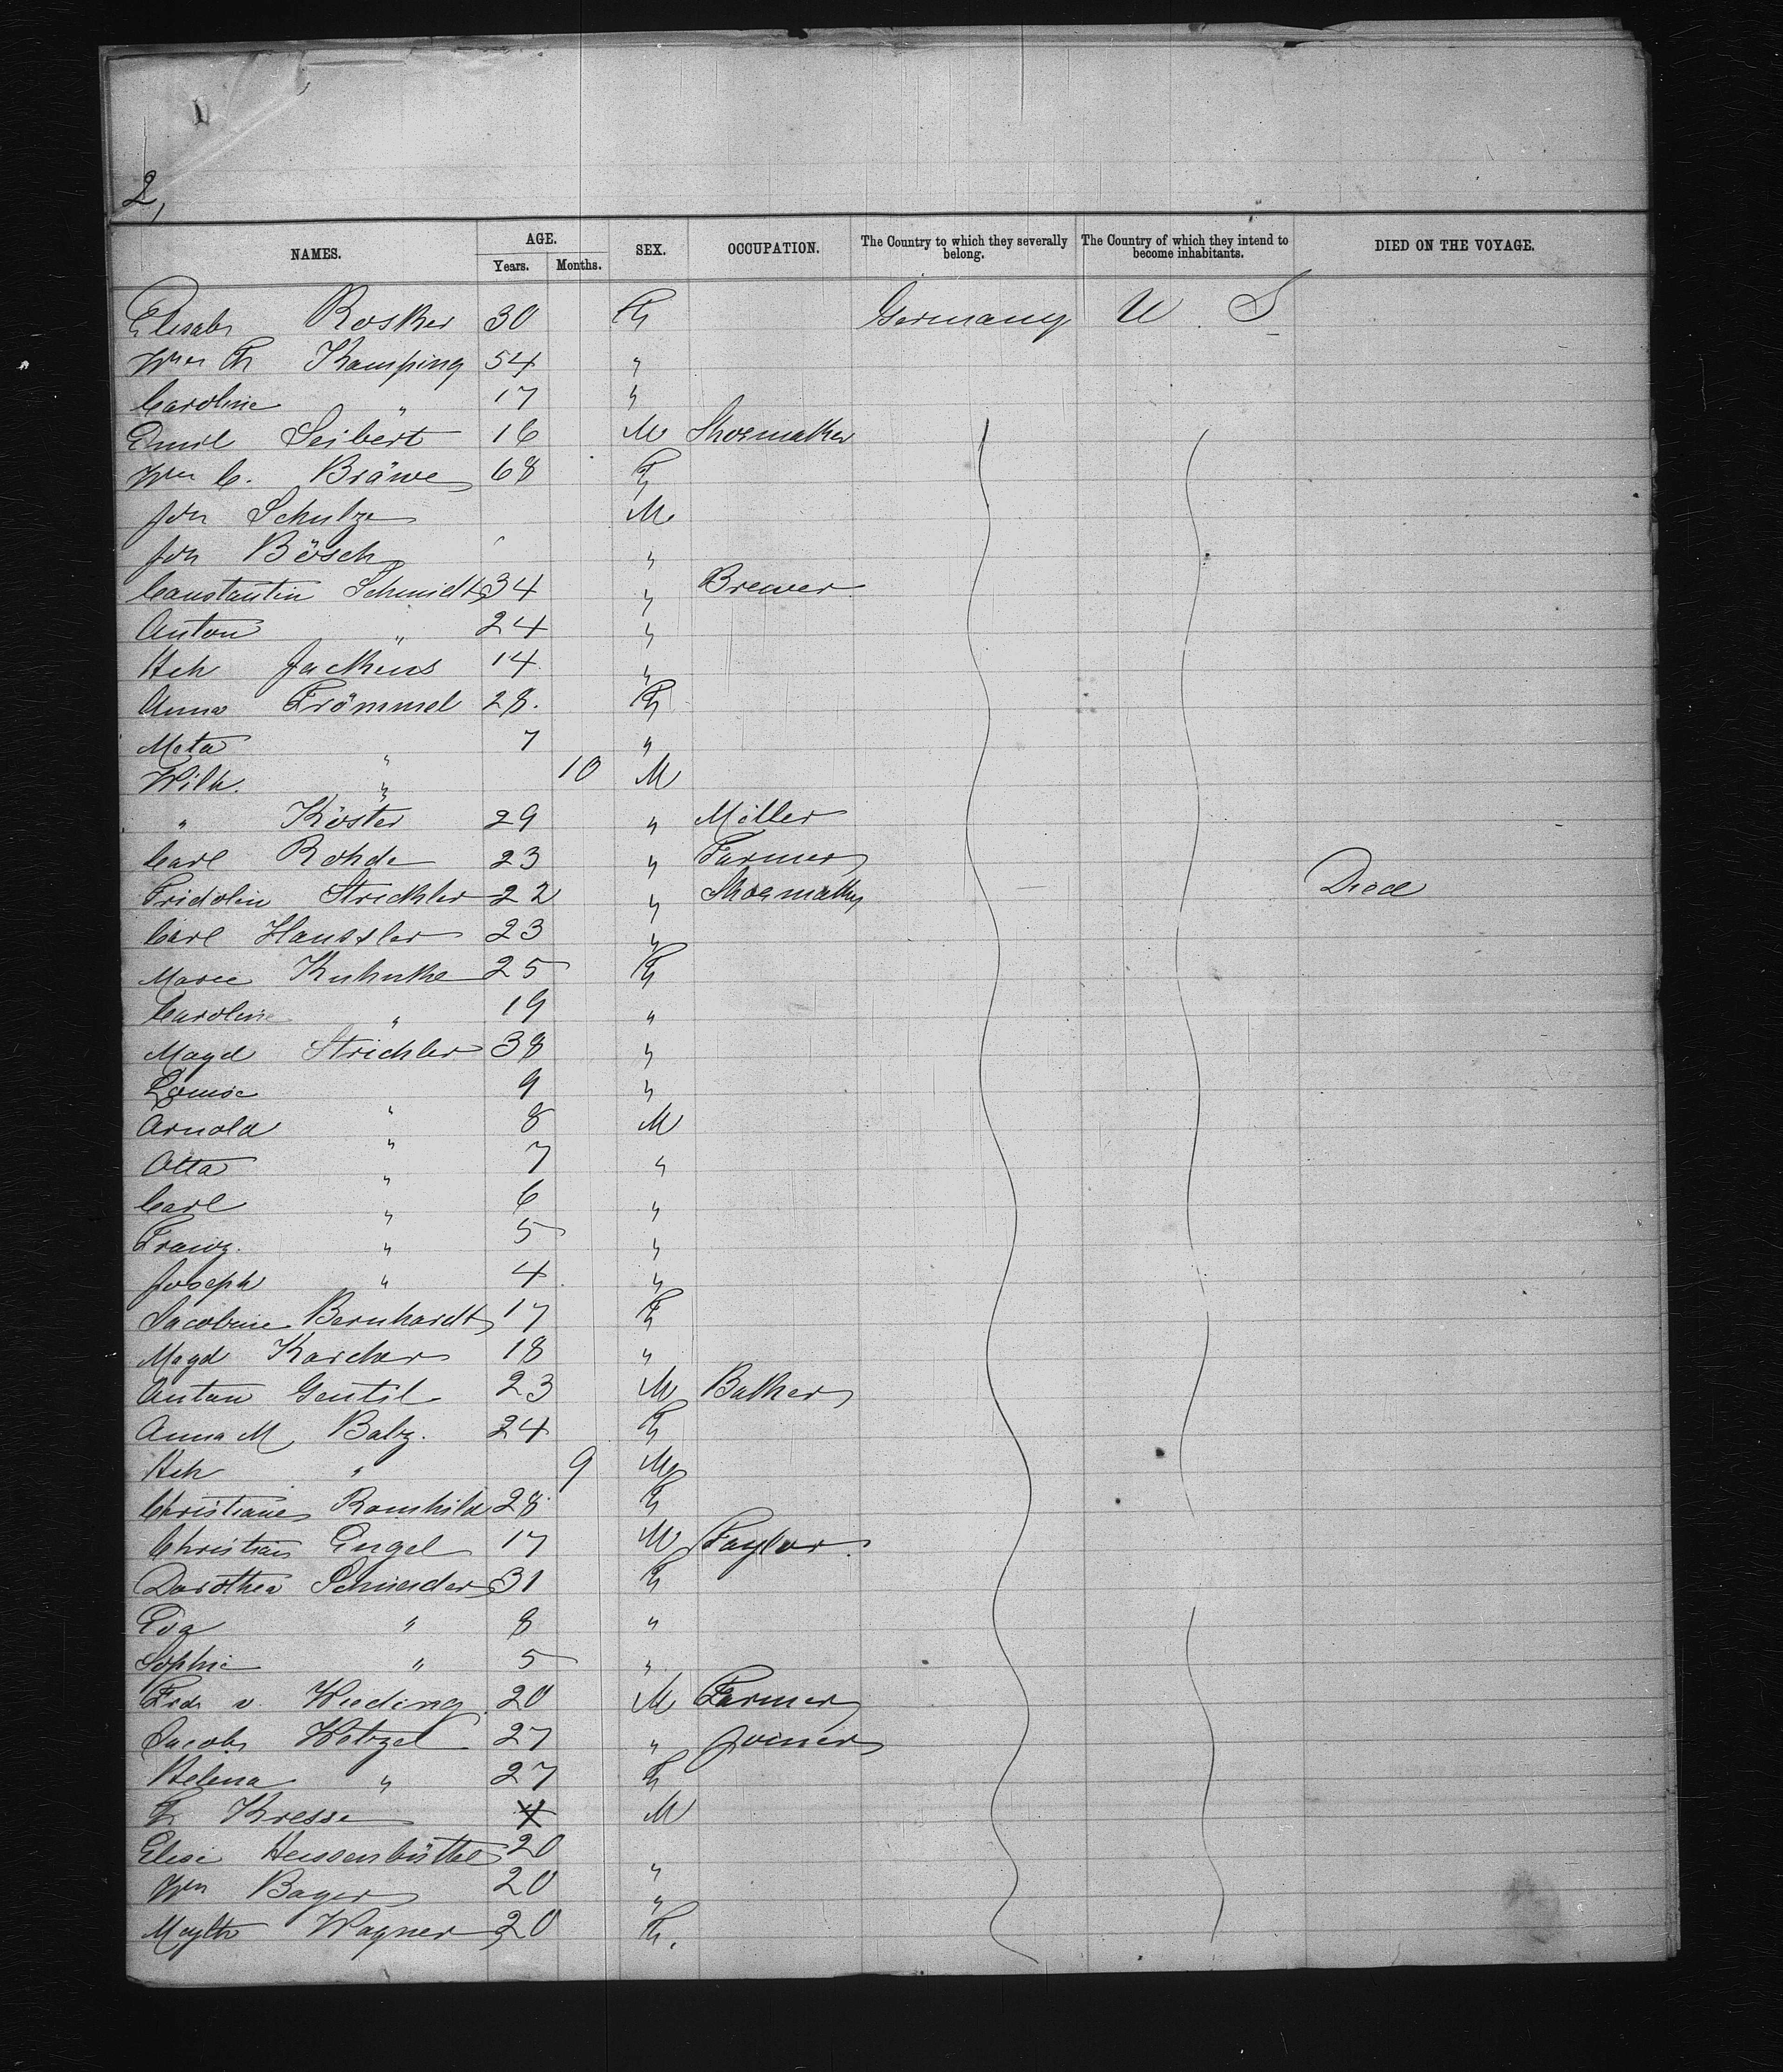 2,
NAMES. AGE. Years. Months. SEX. OCCUPATION. The Country to which they severally belong. The Country of which they intend to become inhabitants. DIED ON THE VOYAGE.
Elisab Rosker 30 F Germany U. S
Wm Fr Kamping 54 "
Caroline " 17 "
Emil Seibert 16 M Shoemaker
Wm C. Bräwe 68 F
Joh Schulze M.
Joh Bösch "
Constantin Schmidt 34 " Brewer
Anton " 24 "
Hch Jackens 14 "
Anna Frömmel 28. F
Meta " 7 "
Wilh. " 10 M
" Köster 29 " Miller
Carl Rohde 23 " Farmer
Fridolin Strickler 22 " Shoemaker Died
Carl Haussler 23 "
Marie Kuhnke 25 F
Caroline " 19 "
Magd Strickler 38 "
Louise " 9 "
Arnold " 8 M
Otto " 7 "
Carl " 6 "
Franz. " 5 "
Joseph " 4 "
Jacobine Bernhardt 17 F
Magd Karcher 18 "
Anton Gentil 23 M Baker
Anna M. Balz. 24 F
Hch " 9 M
Christiane Romhild 28 F
Christian Engel 17 M Taylor
Dorothea Schneider 31 F
Eva " 8 "
Sophie " 5 "
Fr v. Wieding 20 M Farmer
Jacob Wetzel 27 " Joiner
Helena " 27 F
F Kresse M
Elise Heissenbüttel 20 "
Wm Bager 20 "
Wagner 20 F.